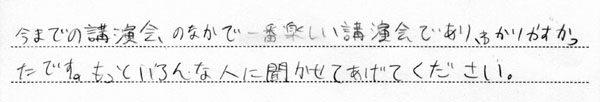 今までの講演会、のなかで一番楽しい講演会であり、わかりやすかっ
たです。もっといろんな人に聞かせてあげてください。